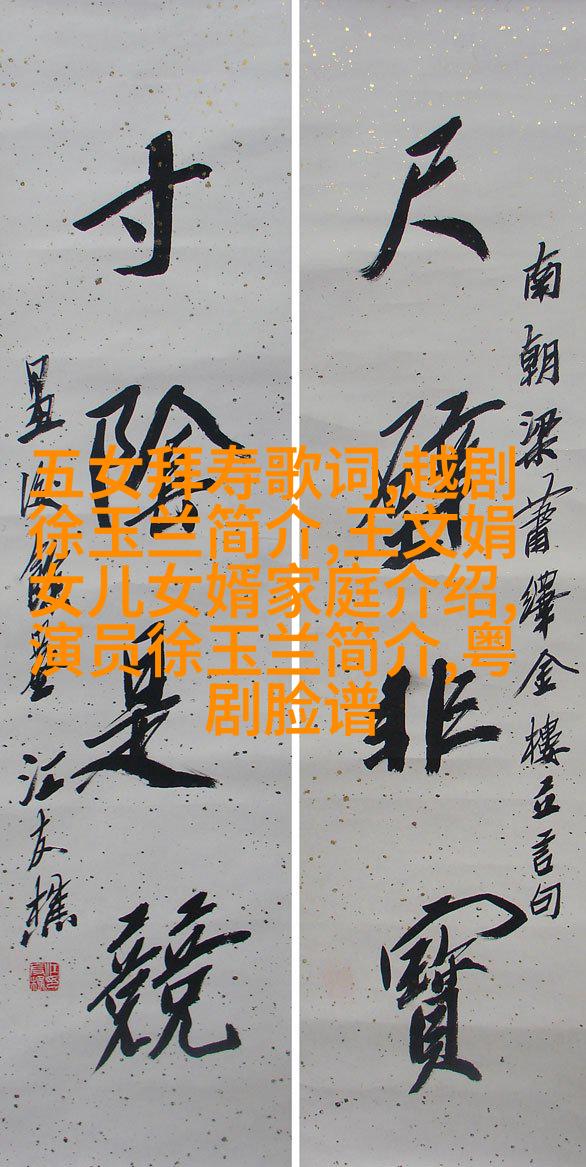 南朝梁蕭繹金樓立言句
尺璧非寶
寸陰是競
汪友樵
五女拜寿歌词,越剧
徐玉兰简介,王文娟
女儿女婿家庭介绍,
演员徐玉兰简介,粤
剧脸谱